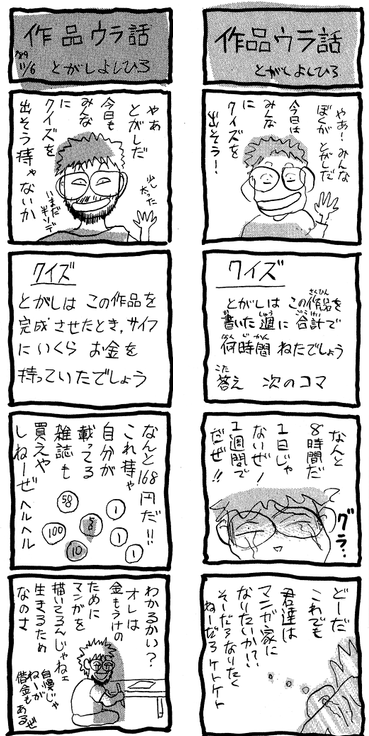 作品ウラ話
とがしよしひろ
やぁ!みんな
ぼくがとがしだ
今日は
みんな
に
クイズを
出そう!
クイズ
とがしは この作品を
さくひん
書いた週に 合計で
か しゅう ごうけい
何時間 ねたでしょう
なんじかん
答え 次のコマ
こた
なんと
8時間だ
1日じゃ
ないぜ!
1週間で
だぜ!!
グラ‥
どーだ
これでも
君達は
マンガ家に
なりたいか!?
そーだろなりたく
ねーだろ ケトケト
作品ウラ話
'89
11/6
とがしよしひろ
やぁ
とがしだ
今日も
みんな
に
クイズを
出そう
じゃないか
少したった
いまだ
半ソデ
クイズ
とがしは この作品を
完成させたとき,サイフ
にいくら お金を
持っていたでしょう
なんと168円だ!!
これじゃ
自分が
載ってる
雑誌も
買えや
しねーぜ ヘルヘル
50
1
5
1
100
10
1
わかるかい?
オレは
金もうけの
ために
マンガを
描いてるんじゃねェ
生きるため
なのさ
自慢じゃ
ねーが
借金もあるぜ